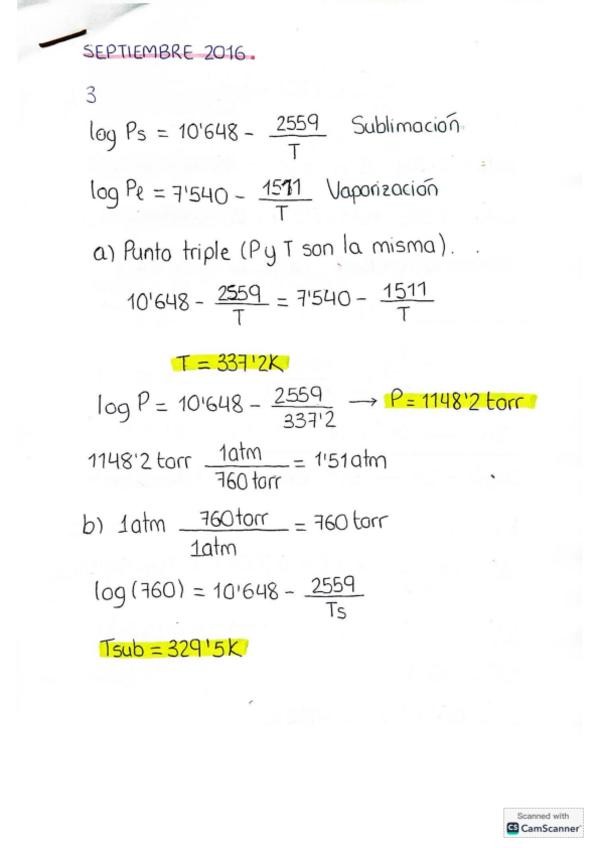 SEPTIEMBRE 2016.
3
log Ps = 10'648 - 2559/T Sublimación.
log Pℓ = 7'540 - 1511/T Vaporización
a) Punto triple (P y T son la misma). .
10'648 - 2559/T = 7'540 - 1511/T
T = 337'2K
log P = 10'648 - 2559/337'2 → P = 1148'2 torr
1148'2 torr 1atm/760 torr = 1'51 atm
b) 1atm 760 torr/1atm = 760 torr
log (760) = 10'648 - 2559/Ts
Tsub = 329'5K
Scanned with
CS CamScanner